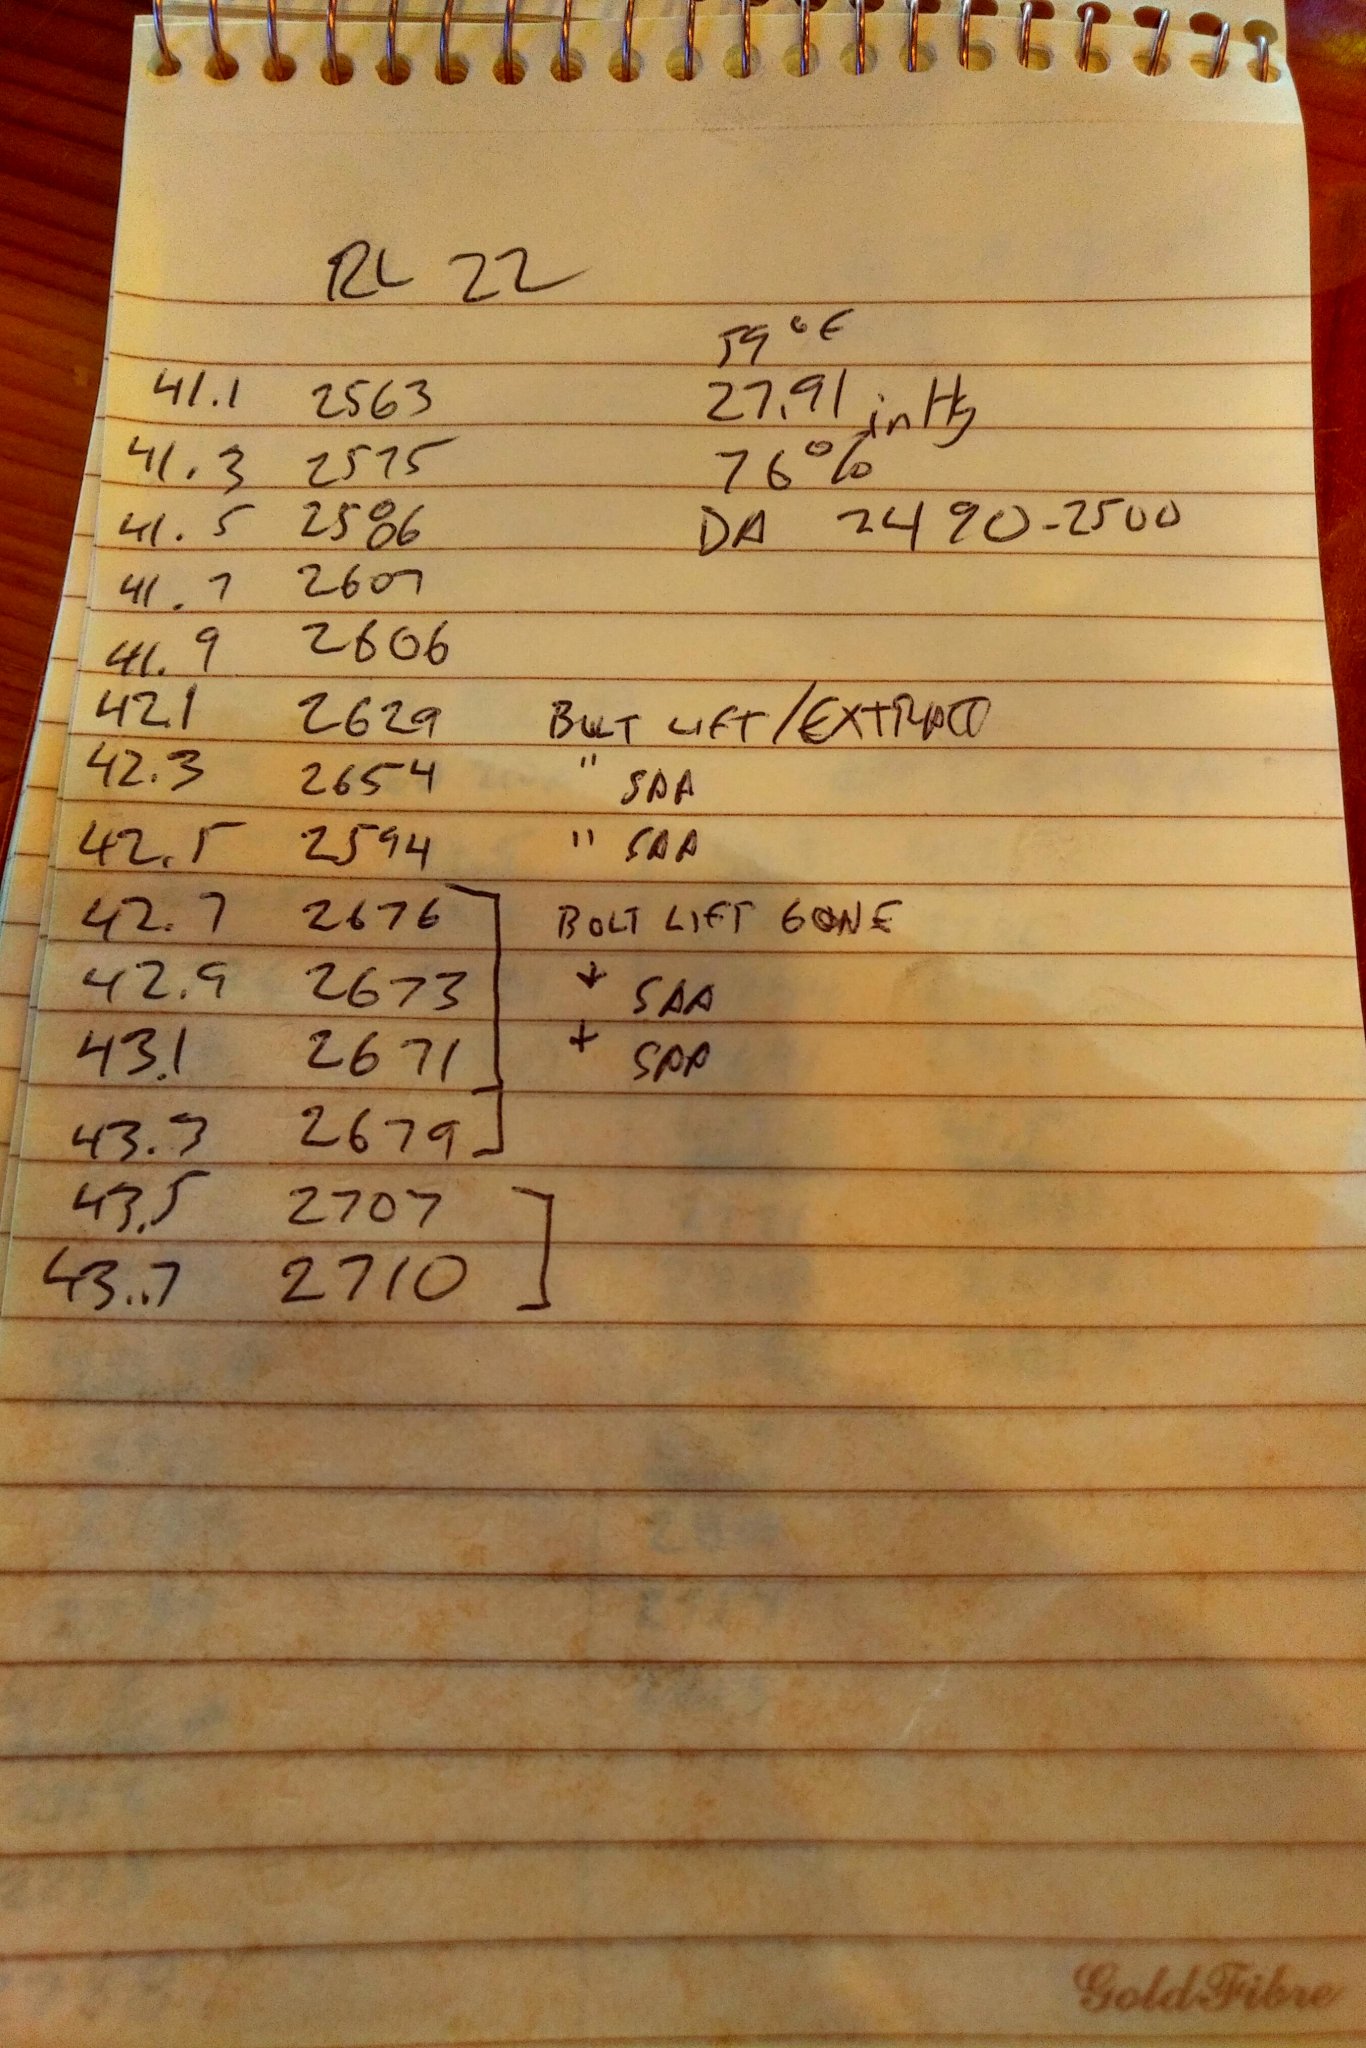 RL 22
59°F
41.1 2563 27.91 inHg
41.3 2575 76%
41.5 2586 DA 2490-2500
41.7 2607
41.9 2606
42.1 2629 BOLT LIFT/EXTRACT
42.3 2654 " SAA
42.5 2594 " SAA
42.7 2676 BOLT LIFT GONE
42.9 2673 SAA
43.1 2671 SAA
43.3 2679
43.5 2707
43..7 2710
GoldFibre